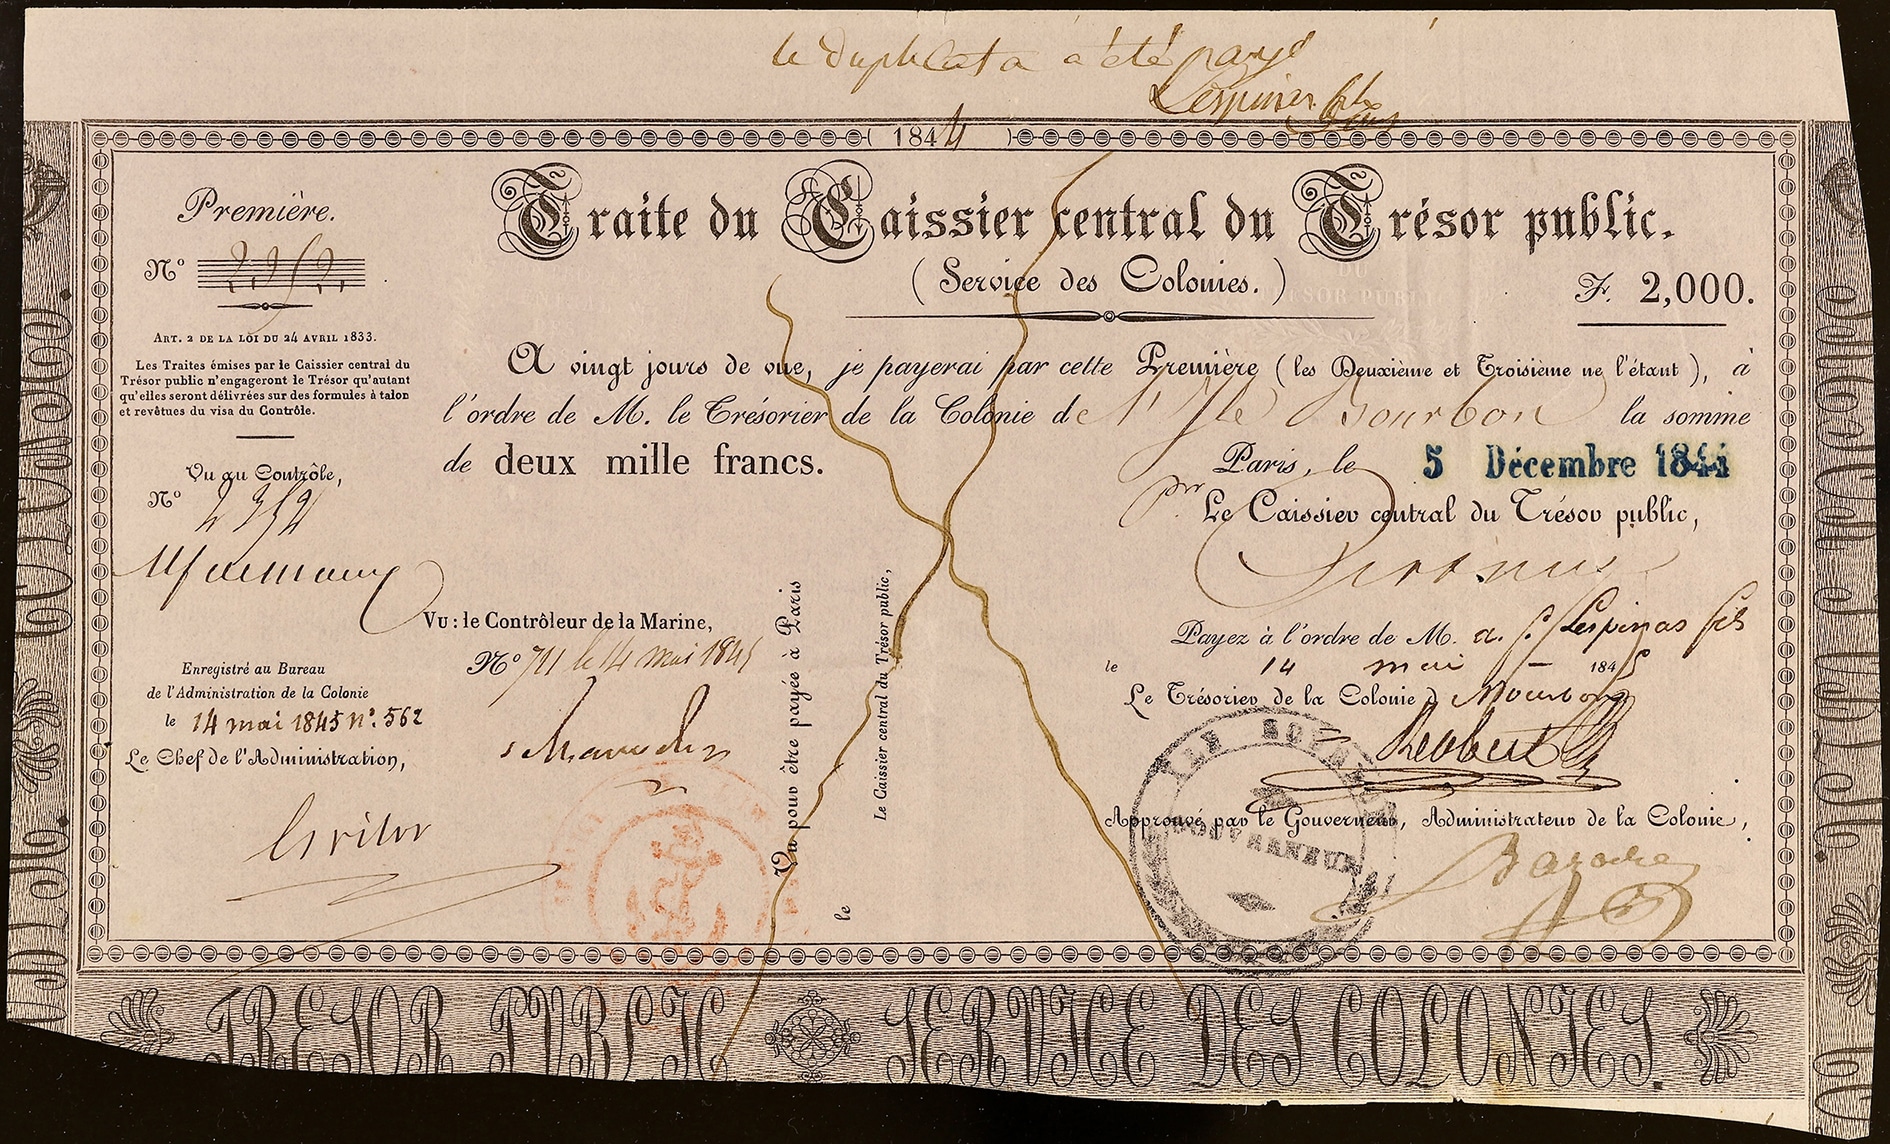 le duplicata a été payé
Lespinas fils
( 1844 )
Première.
Traite du Caissier central du Trésor public.
Nº 2352
(Service des Colonies.)
Fr. 2,000.
ART. 2 DE LA LOI DU 24 AVRIL 1833.
Les Traites émises par le Caissier central du
Trésor public n'engageront le Trésor qu'autant
qu'elles seront délivrées sur des formules à talon
et revêtues du visa du Contrôle.
A vingt jours de vue, je payerai par cette Première (les Deuxième et Troisième ne l'étant), à
l'ordre de M. le Trésorier de la Colonie de l'Isle Bourbon la somme
de deux mille francs.
Paris, le 5 Décembre 1844
Pr. Le Caissier central du Trésor public,
Vu au Contrôle,
Nº 2352
Vu : le Contrôleur de la Marine,
Nº 711 le 14 mai 1845
Enregistré au Bureau
de l'Administration de la Colonie
le 14 mai 1845 Nº. 562
Le Chef de l'Administration,
Vu pour être payée à Paris
le
Le Caissier central du Trésor public,
Payez à l'ordre de M. a. f. Lespinas fils
le 14 mai 1845
Le Trésorier de la Colonie d Bourbon
ILE BOURBON
GOUVERNEUR
Approuvé par le Gouverneur, Administrateur de la Colonie,
Bazoche
TRESOR PUBLIC SERVICE DES COLONIES.